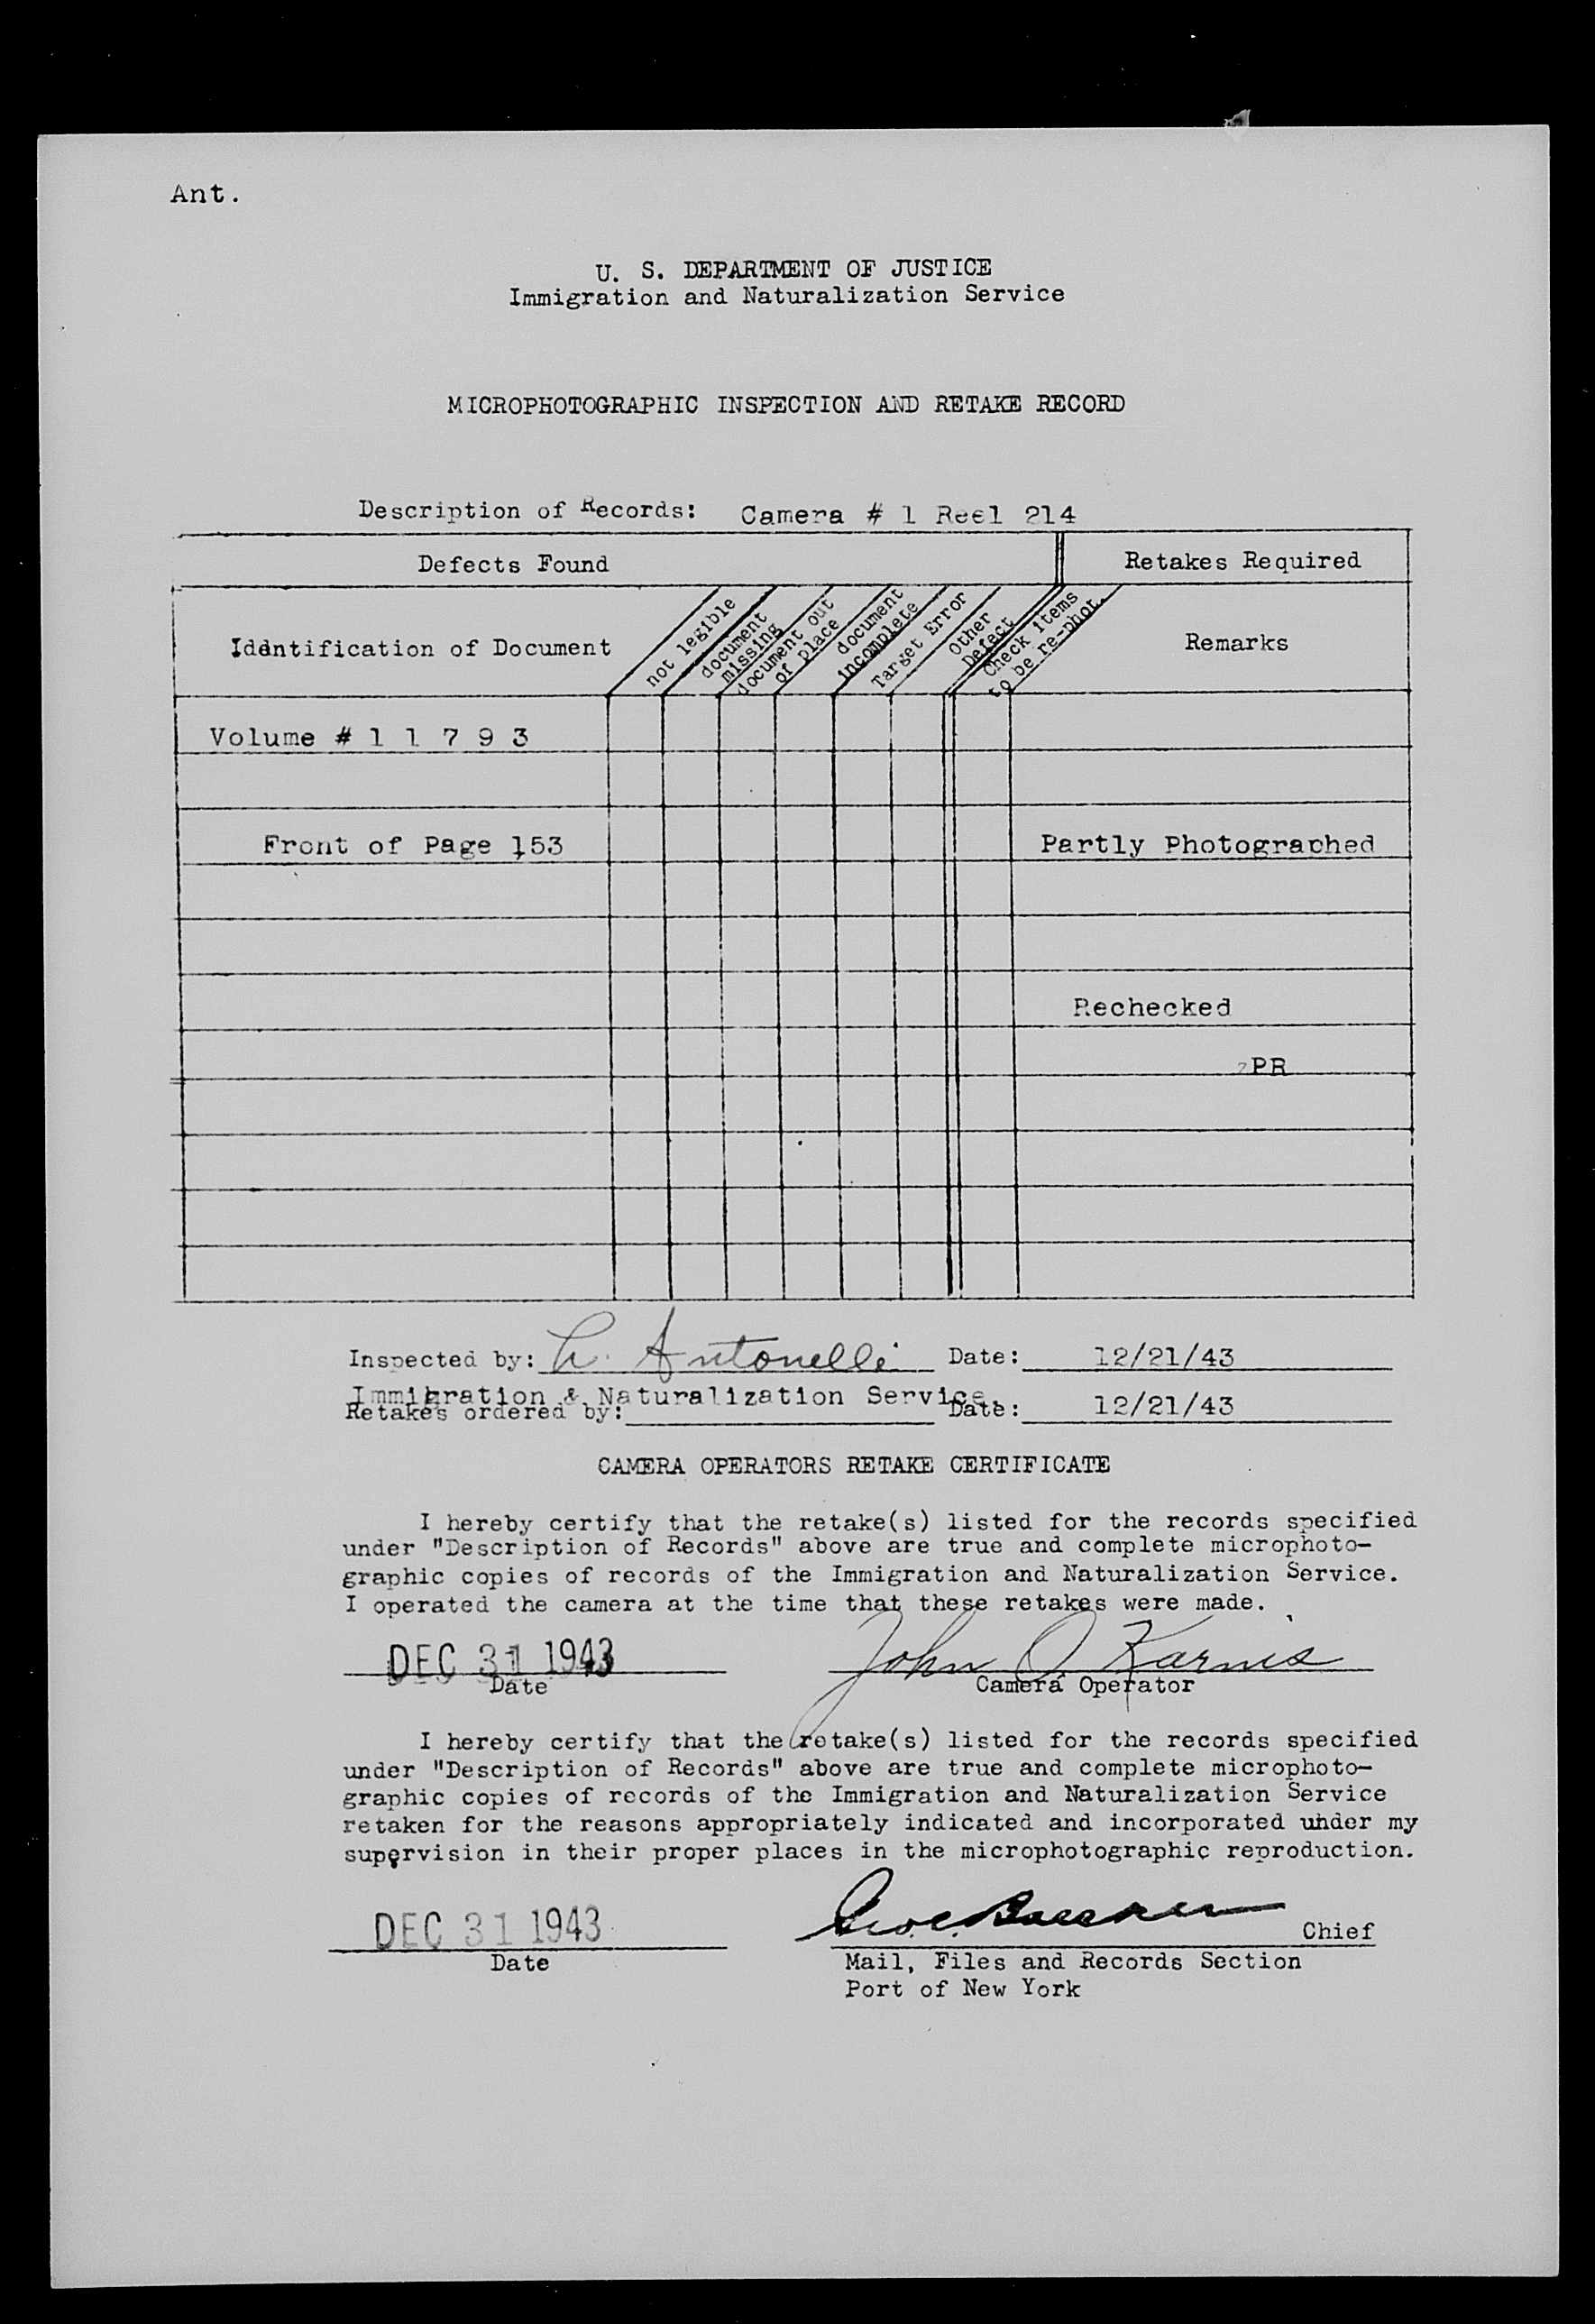 Ant.
U. S. DEPARTMENT OF JUSTICE
Immigration and Naturalization Service
MICROPHOTOGRAPHIC INSPECTION AND RETAKE RECORD
Description of Records: Camera # 1 Reel 214
Defects Found
Retakes Required
Iddntification of Document
not legible
document missing
document out of place
document incomplete
Target Error
Other Defect
Check items to be re-phot.
Remarks
Volume # 1 1 7 9 3
Front of Page 153 Partly Photographed
Rechecked
PR
Inspected by: Antonelli Date: 12/21/43
Immigration & Naturalization Service.
Retakes ordered by: Date: 12/21/43
CAMERA OPERATORS RETAKE CERTIFICATE
I hereby certify that the retake(s) listed for the records specified
under "Description of Records" above are true and complete microphoto-
graphic copies of records of the Immigration and Naturalization Service.
I operated the camera at the time that these retakes were made.
DEC 31 1943 John O Karnis
Date Camera Operator
I hereby certify that the retake(s) listed for the records specified
under "Description of Records" above are true and complete microphoto-
graphic copies of records of the Immigration and Naturalization Service
retaken for the reasons appropriately indicated and incorporated under my
supervision in their proper places in the microphotographic reproduction.
DEC 31 1943 Chief
Date Mail, Files and Records Section
Port of New York